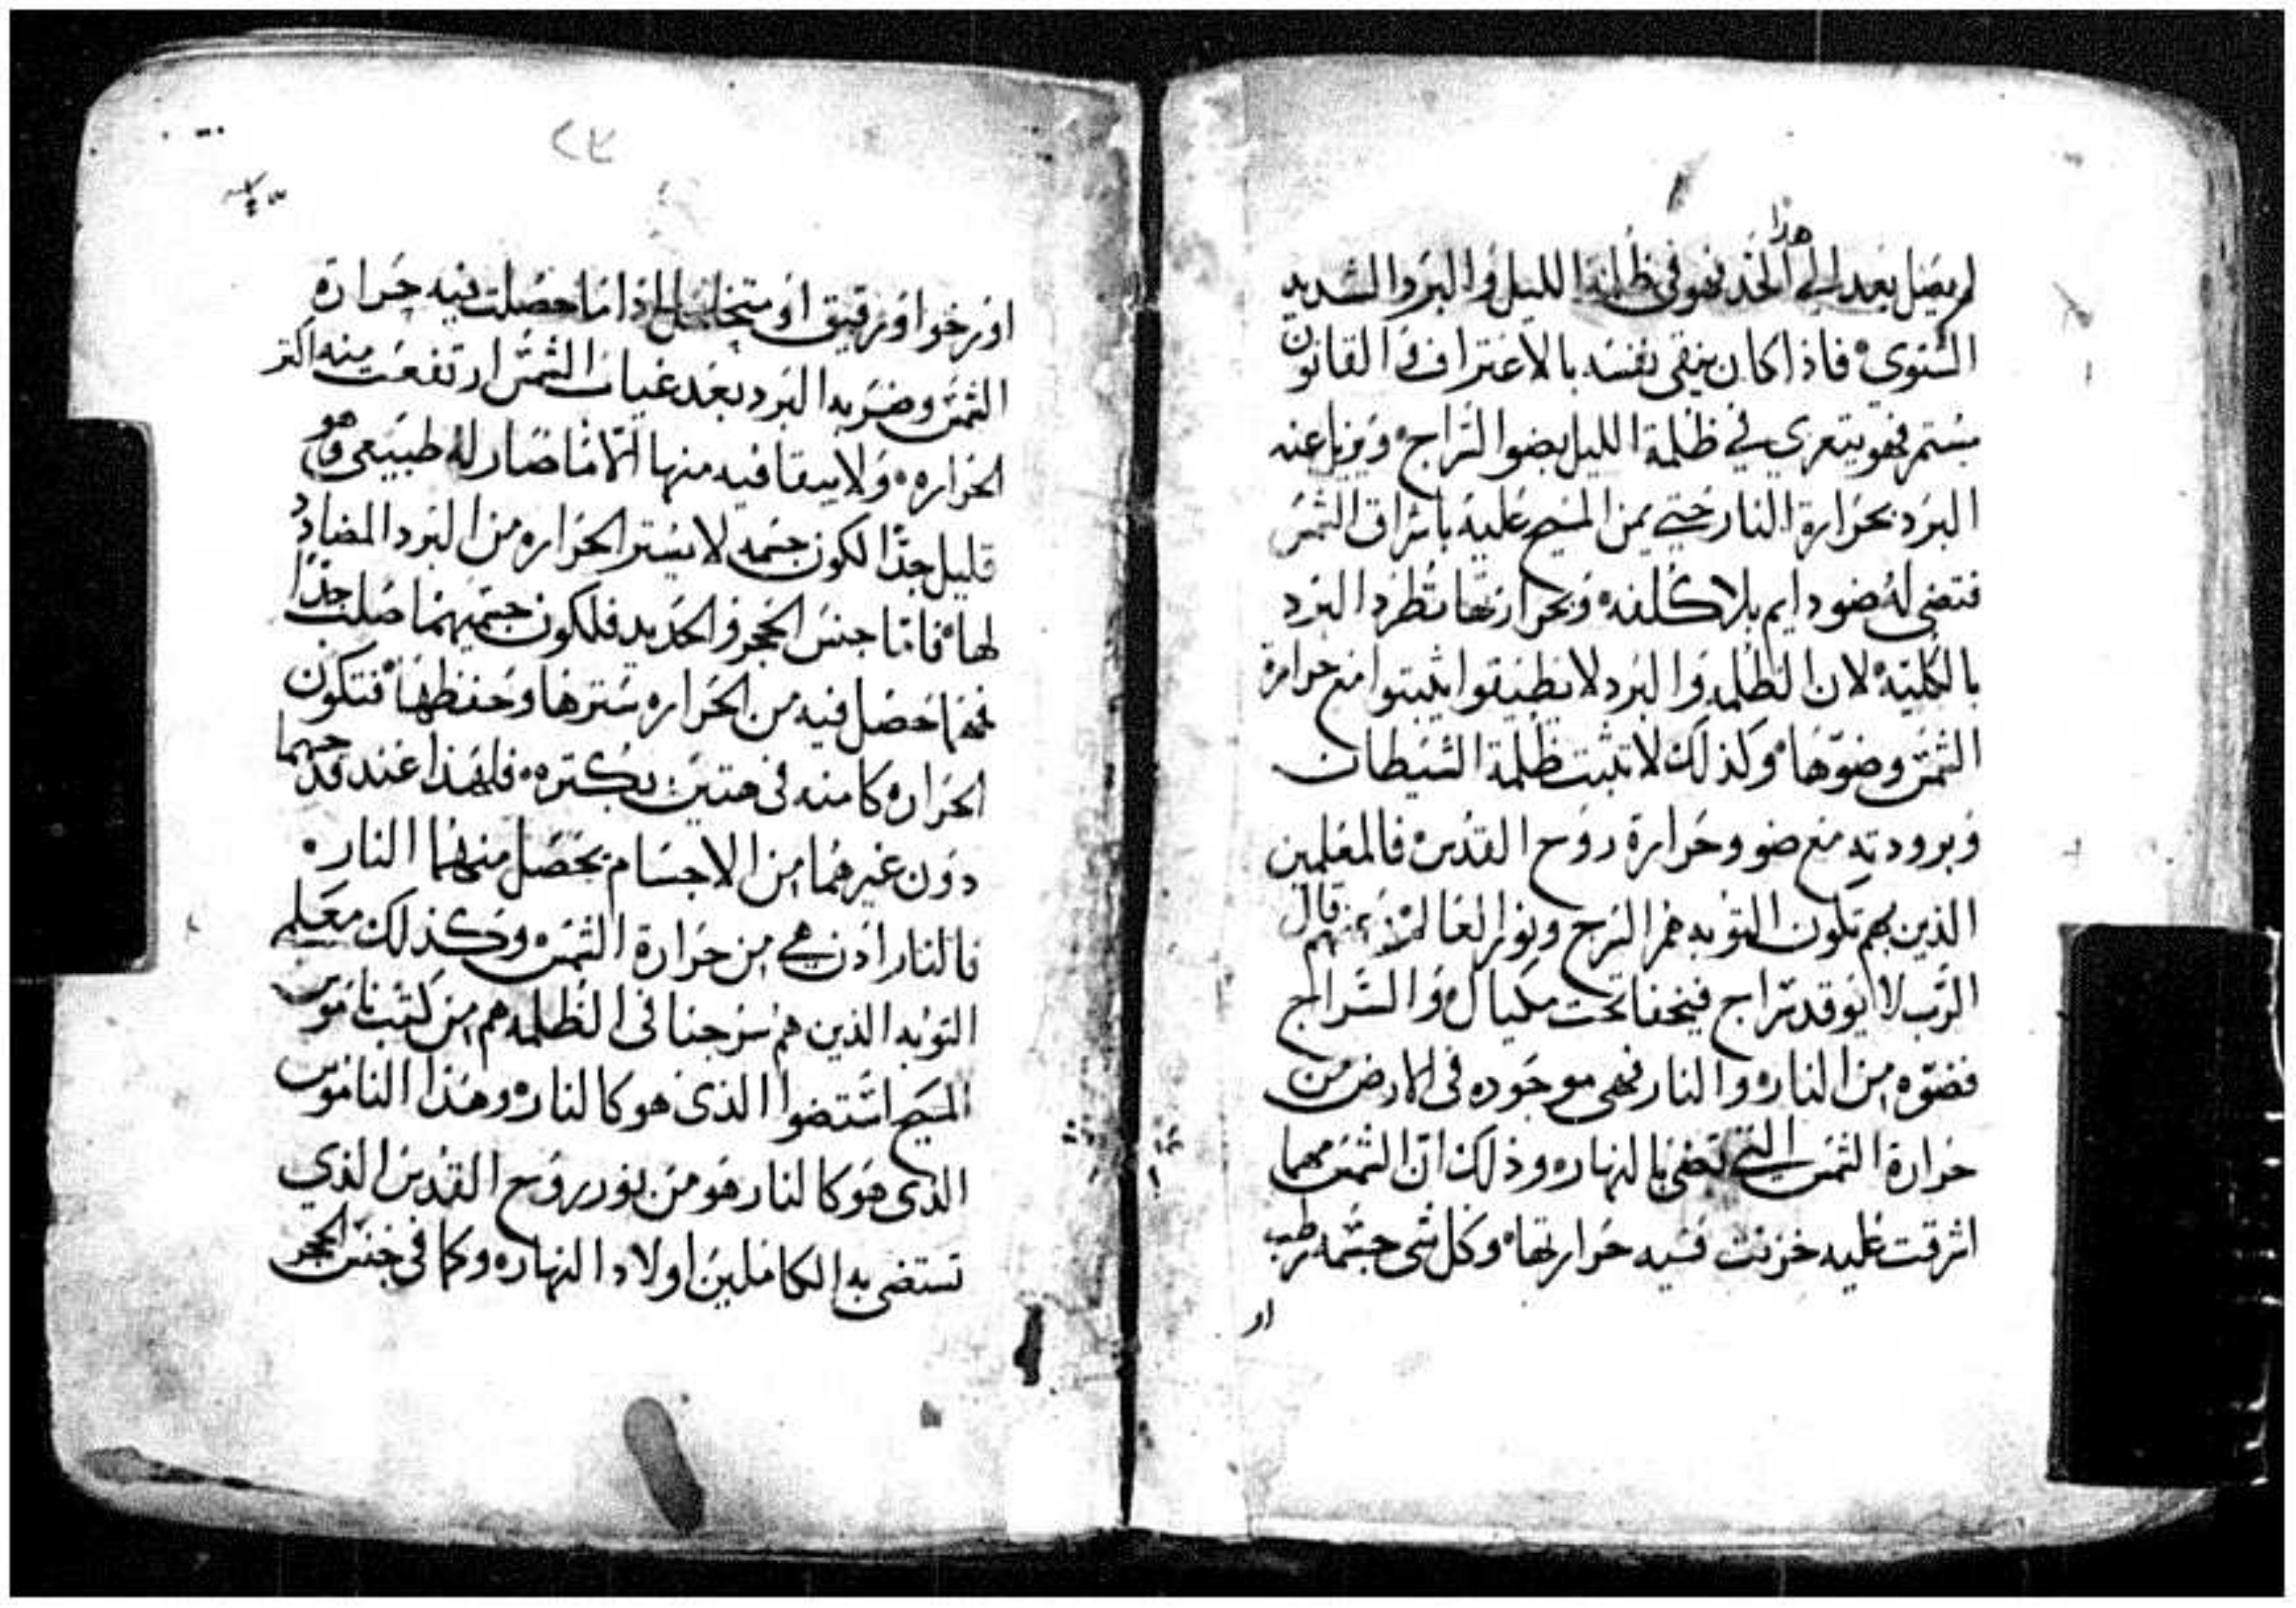 هذا
لم يصل بعد الى الحد فهو في ظلمة الليل والبرد الشديد
الشتوي فاذا كان ينقي نفسه بالاعتراف والقانون
يستمر فهو يتعزي في ظلمة الليل بضو السراج ويزيل عنه
البرد بحرارة النار حتي يمن المسيح عليه باشراق الشمس
فتضي له ضو دايم بلا كلفه وبحرارتها تطرد البرد
بالكليه لان الظلمه والبرد لا يطيقوا يثبتوا مع حرارة
الشمس وضوها وكذلك لا تثبت ظلمة الشيطان
وبرودته مع ضو وحرارة روح القدس فالمعلمين
الذين بهم تكون التوبه هم السرج ونور العالم قال
الرب لا يوقد سراج فيخفا تحت مكيال والسراج
فضوه من النار والنار فهي موجوده في الارض من
حرارة الشمس التي تضي بالنهار وذلك ان الشمس مهما
اشرقت عليه خزنت فيه حرارتها وكل شي جسمه رطب
او
او رخوا او رقيق او متخلخل اذا ما حصلت فيه حرارة
الشمس وضربه البرد بعد غياب الشمس ارتفعت منه اكثر
الحراره ولا يبقا فيه منها الا ما صار له طبيعي وهو
قليل جدا لكون جسمه لا يستر الحراره من البرد المضادد
لها فاما جنس الحجر والحديد فلكون جسميهما صلب جدا
فمهما حصل فيه من الحراره سترها وحفظها فتكون
الحراره كامنه في هتين بكتره فلهذا عند قدحهما
دون غيرهما من الاجسام يحصل منهما النار
فالنار اذن هي من حرارة الشمس وكذلك معلمي
التوبه الذين هم سرجنا في الظلمه هم من كتب ناموس
المسيح استضوا الذي هو كالنار وهذا الناموس
الذي هو كالنار هو من نور روح القدس الذي
تستضي به الكاملين اولاد النهار وكما في جنس الحجر